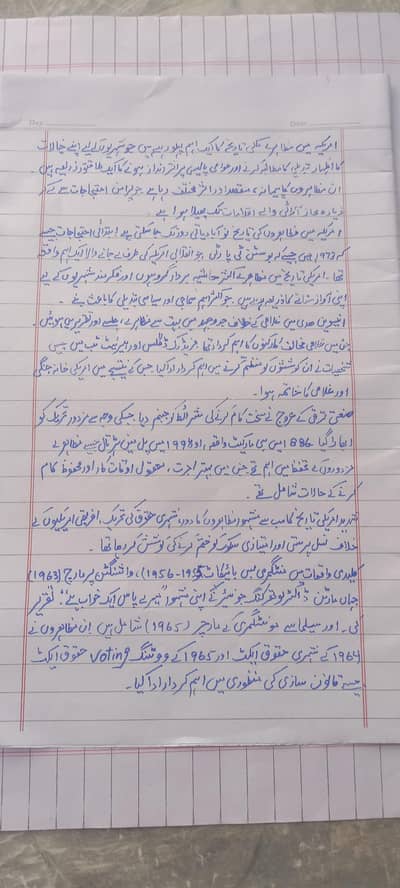 امریکہ میں مظاہرے ملکی تاریخ کا ایک اہم پہلو رہے ہیں جو شہریوں کے لیے اپنے خیالات
کا اظہار تبدیلی کا مطالبہ کرنے اور عوامی پالیسی پر اثر انداز ہونے کا ایک طاقتور ذریعہ ہیں۔
ان مظاہروں کا پیمانہ، مقصد اور اثر مختلف رہا ہے جو پرامن احتجاجات سے لے کر
زیادہ محاذ آرائی والے اقدامات تک پھیلا ہوا ہے۔
امریکہ میں مظاہروں کی تاریخ نوآبادیاتی دور تک جا سکتی ہے ابتدائی احتجاجات جیسے
کہ 1773 میں بوسٹن ٹی پارٹی جو انقلابی امریکہ کی طرف لے جانے والا ایک اہم واقعہ
تھا۔ امریکی تاریخ میں مظاہرے اکثر حاشیہ بردار گروہوں اور فکر مند شہریوں کے لیے
اپنی آواز سنانے کا ذریعہ رہے ہیں۔ جو اکثر اہم سماجی اور سیاسی تبدیلی کا باعث بنے۔
انیسویں صدی میں غلامی کے خلاف جدوجہد میں بہت سے مظاہرے، جلسے اور تقریریں ہوئیں
جن میں غلامی مخالف کارکنوں کا اہم کردار تھا فریڈرک ڈگلس اور ہیریٹ ٹب مین جیسی
شخصیات نے ان کوششوں کو منظم کرنے میں اہم کردار ادا کیا، جس کے نتیجے میں امریکی خانہ جنگی
اور غلامی کا خاتمہ ہوا۔
صنعتی ترقی کے عروج نے سخت کام کرنے کی شرائط کو جنم دیا جسکی وجہ سے مزدور تحریک کو
ابھارا گیا 1886 میں ہے مارکیٹ واقعہ اور 1894 میں پل مین ہڑتال جیسے مظاہرے
مزدوروں کے تحفظ میں اہم تھے جن میں بہتر اجرت، معقول اوقات کار اور محفوظ کام
کرنے کے حالات شامل تھے۔
شاید امریکی تاریخ کا سب سے مشہور مظاہروں کا دور، شہری حقوق کی تحریک، افریقی امریکیوں کے
خلاف نسل پرستی اور امتیازی سلوک کو ختم کرنے کی کوشش کر رہا تھا۔
کلیدی واقعات میں منٹگمری بس بائیکاٹ (1955-1956)، واشنگٹن پر مارچ (1963)
جہاں مارٹن لوتھر کنگ جونیئر نے اپنی مشہور "میرے پاس ایک خواب ہے" تقریر
کی۔ اور سیلما سے منٹگمری کے مارچز (1965) شامل ہیں۔ ان مظاہروں نے
1964 کے شہری حقوق ایکٹ اور 1965 کے ووٹنگ voting حقوق ایکٹ
جیسے قانون سازی کی منظوری میں اہم کردار ادا کیا۔